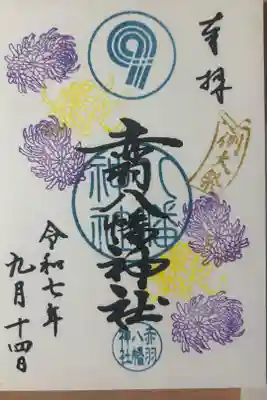 奉拝
例大祭
赤羽八幡神社
八幡神社
赤羽八幡神社
令和七年
九月十四日